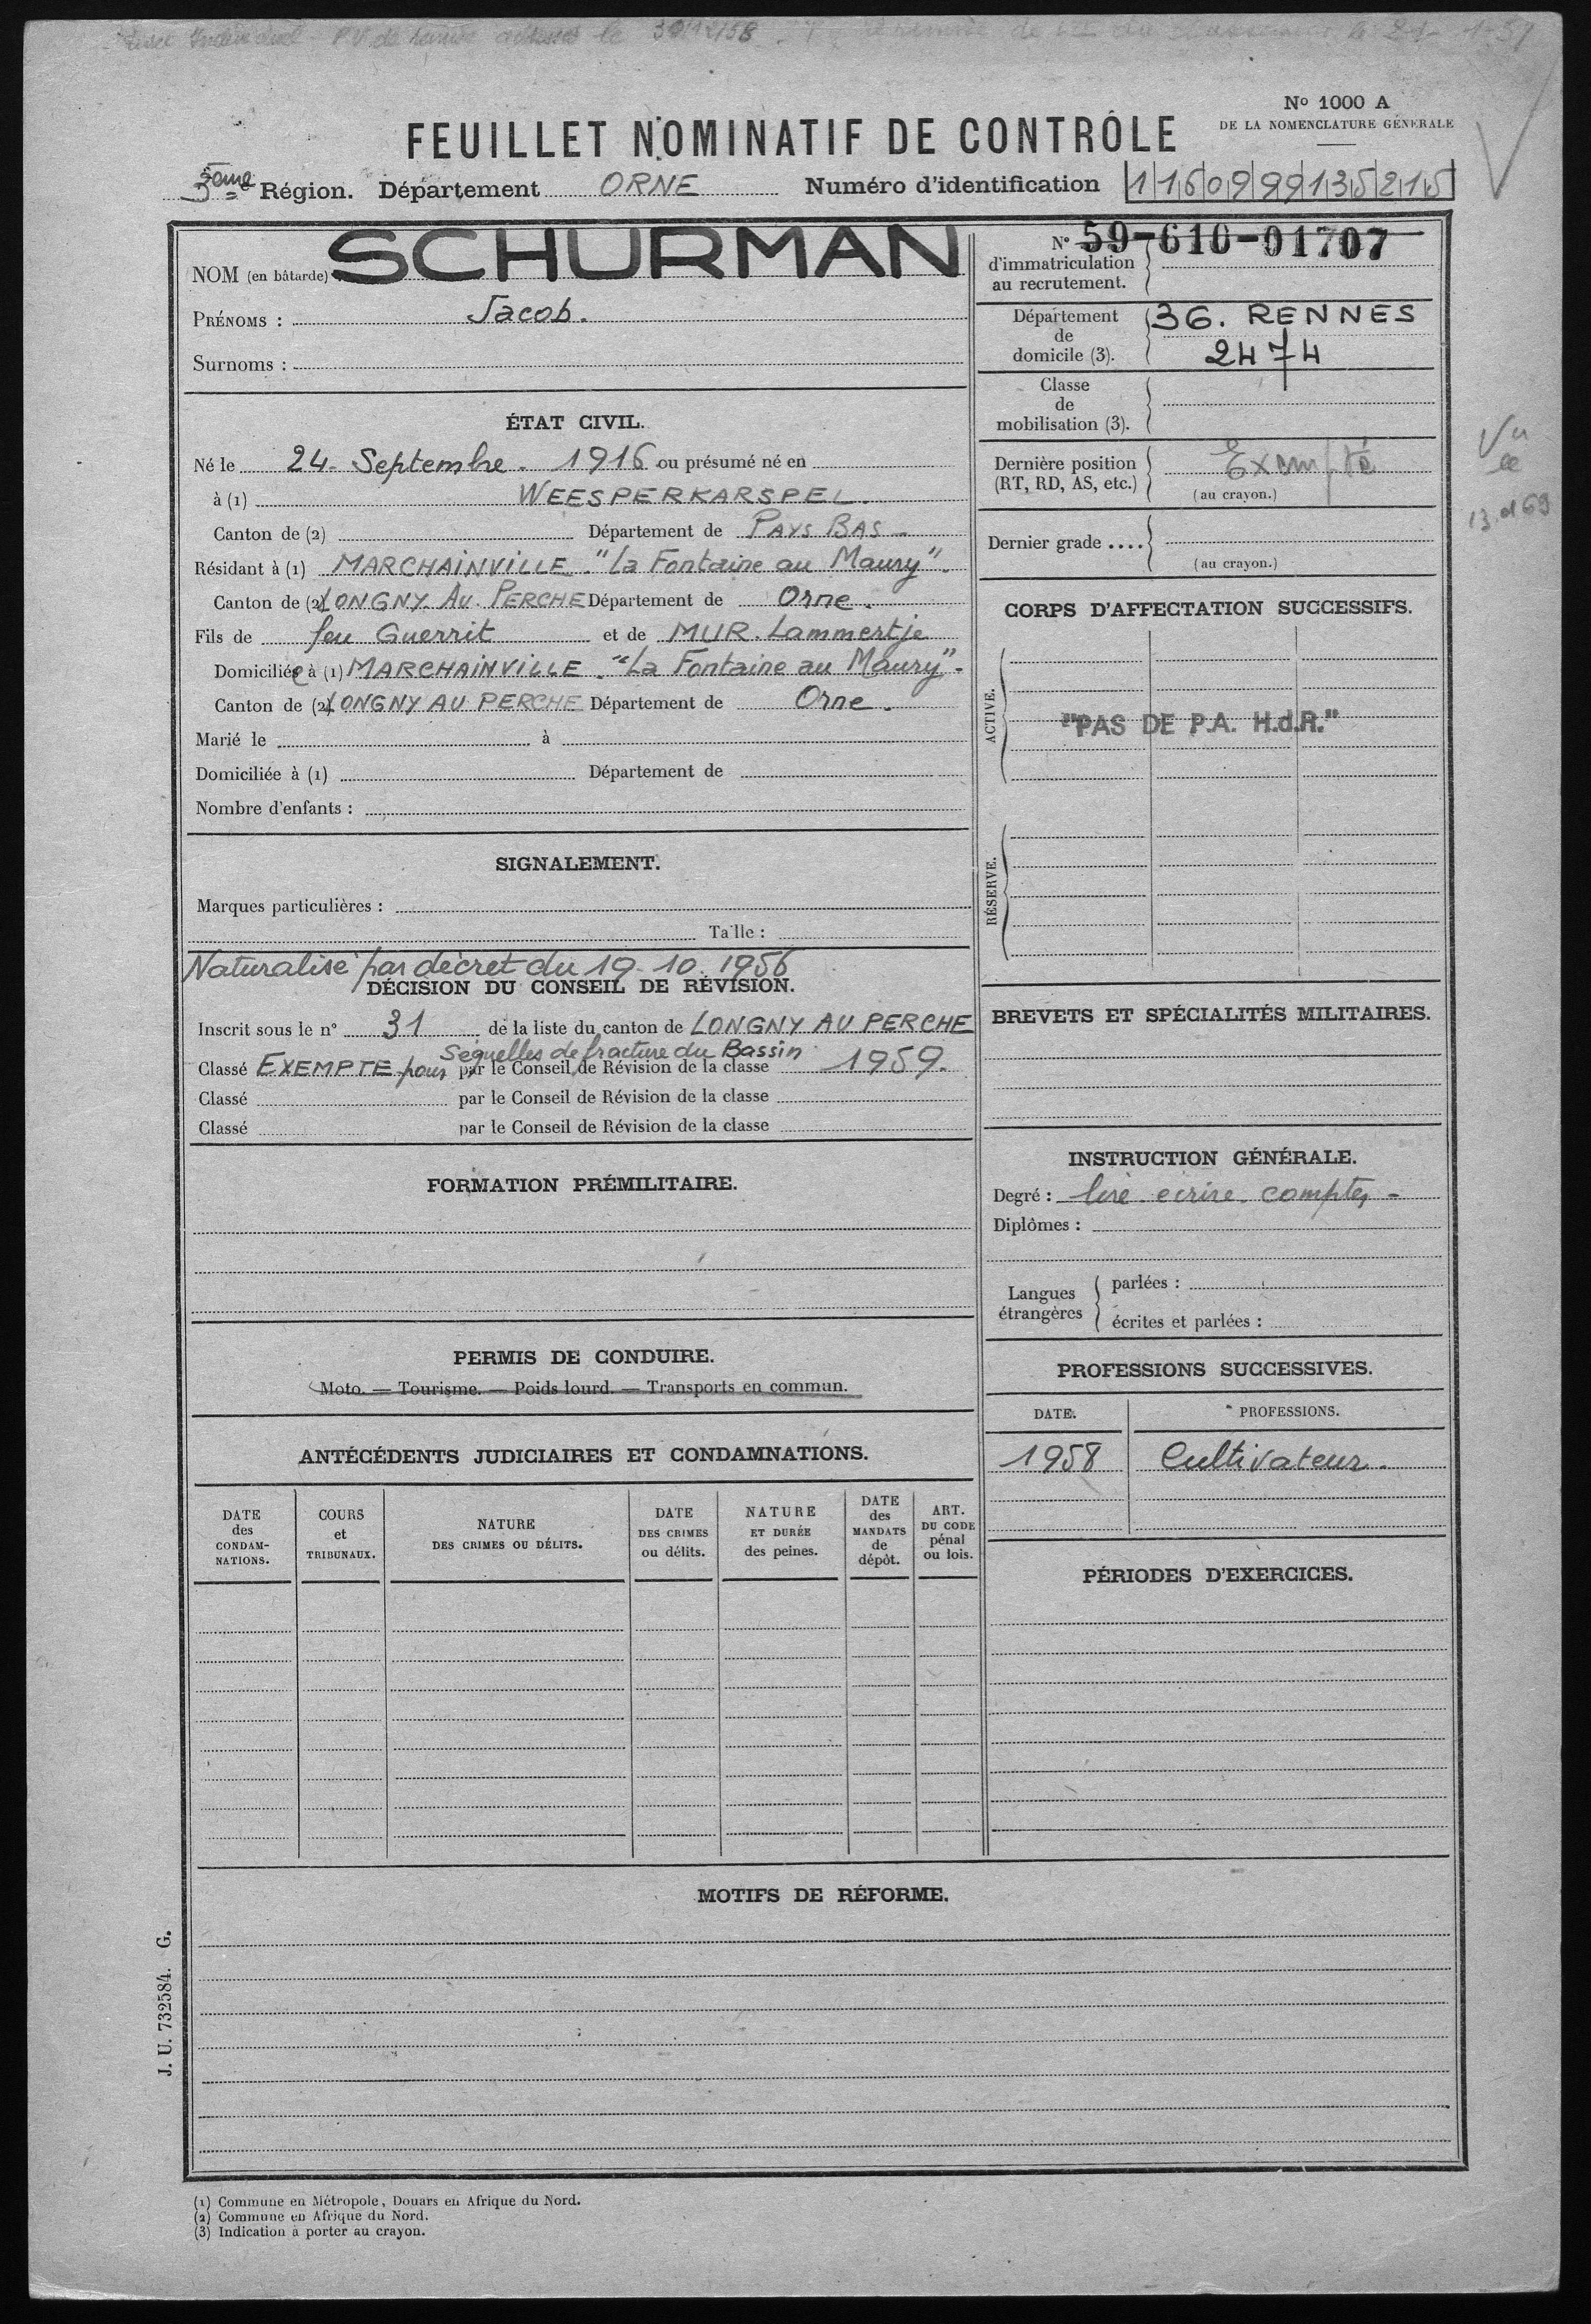 30/12/58
No 1000 A
DE LA NOMENCLATURE GÉNÉRALE
FEUILLET NOMINATIF DE CONTRÔLE
3ème Région. Département ORNE Numéro d'identification 1160999135215
NOM (en bâtarde) SCHURMAN
PRÉNOMS : Jacob.
Surnoms :
ÉTAT CIVIL.
Né le 24 Septembre. 1916 ou présumé né en
à (1) WEESPERKARSPEL.
Canton de (2) Département de PAYS BAS
Résidant à (1) MARCHAINVILLE. "La Fontaine au Maury".
Canton de (2) LONGNY AU PERCHE Département de Orne.
Fils de feu Guerrit et de MUR. Lammertje
Domiciliée à (1) MARCHAINVILLE. "La Fontaine au Maury".
Canton de (2) LONGNY AU PERCHE Département de Orne.
Marié le à
Domiciliée à (1) Département de
Nombre d'enfants :
SIGNALEMENT.
Marques particulières :
Taille :
Naturalisé par décret du 19-10.1956
DÉCISION DU CONSEIL DE RÉVISION.
Inscrit sous le n° 31 de la liste du canton de LONGNY AU PERCHE
Séquelles de fracture du Bassin
Classé EXEMPTE pour par le Conseil de Révision de la classe 1959.
Classé par le Conseil de Révision de la classe
Classé par le Conseil de Révision de la classe
FORMATION PRÉMILITAIRE.
PERMIS DE CONDUIRE.
Moto. — Tourisme. — Poids lourd. — Transports en commun.
ANTÉCÉDENTS JUDICIAIRES ET CONDAMNATIONS.
DATE des CONDAM-NATIONS.
COURS et TRIBUNAUX.
NATURE DES CRIMES OU DÉLITS.
DATE DES CRIMES ou délits.
NATURE ET DURÉE des peines.
DATE des MANDATS de dépôt.
ART. DU CODE pénal ou lois.
N° d'immatriculation au recrutement. 59-610-01707
Département de domicile (3). 36. RENNES
2474
Classe de mobilisation (3).
Dernière position (RT, RD, AS, etc.) Exempté
(au crayon.)
Vu
Dernier grade ....
(au crayon.)
CORPS D'AFFECTATION SUCCESSIFS.
ACTIVE.
"PAS DE P.A. H.d.R."
RÉSERVE.
BREVETS ET SPÉCIALITÉS MILITAIRES.
INSTRUCTION GÉNÉRALE.
Degré : lire écrire compter -
Diplômes :
Langues étrangères
parlées :
écrites et parlées :
PROFESSIONS SUCCESSIVES.
DATE. PROFESSIONS.
1958 Cultivateur.
PÉRIODES D'EXERCICES.
MOTIFS DE RÉFORME.
J. U. 732584. G.
(1) Commune en Métropole, Douars en Afrique du Nord.
(2) Commune en Afrique du Nord.
(3) Indication à porter au crayon.